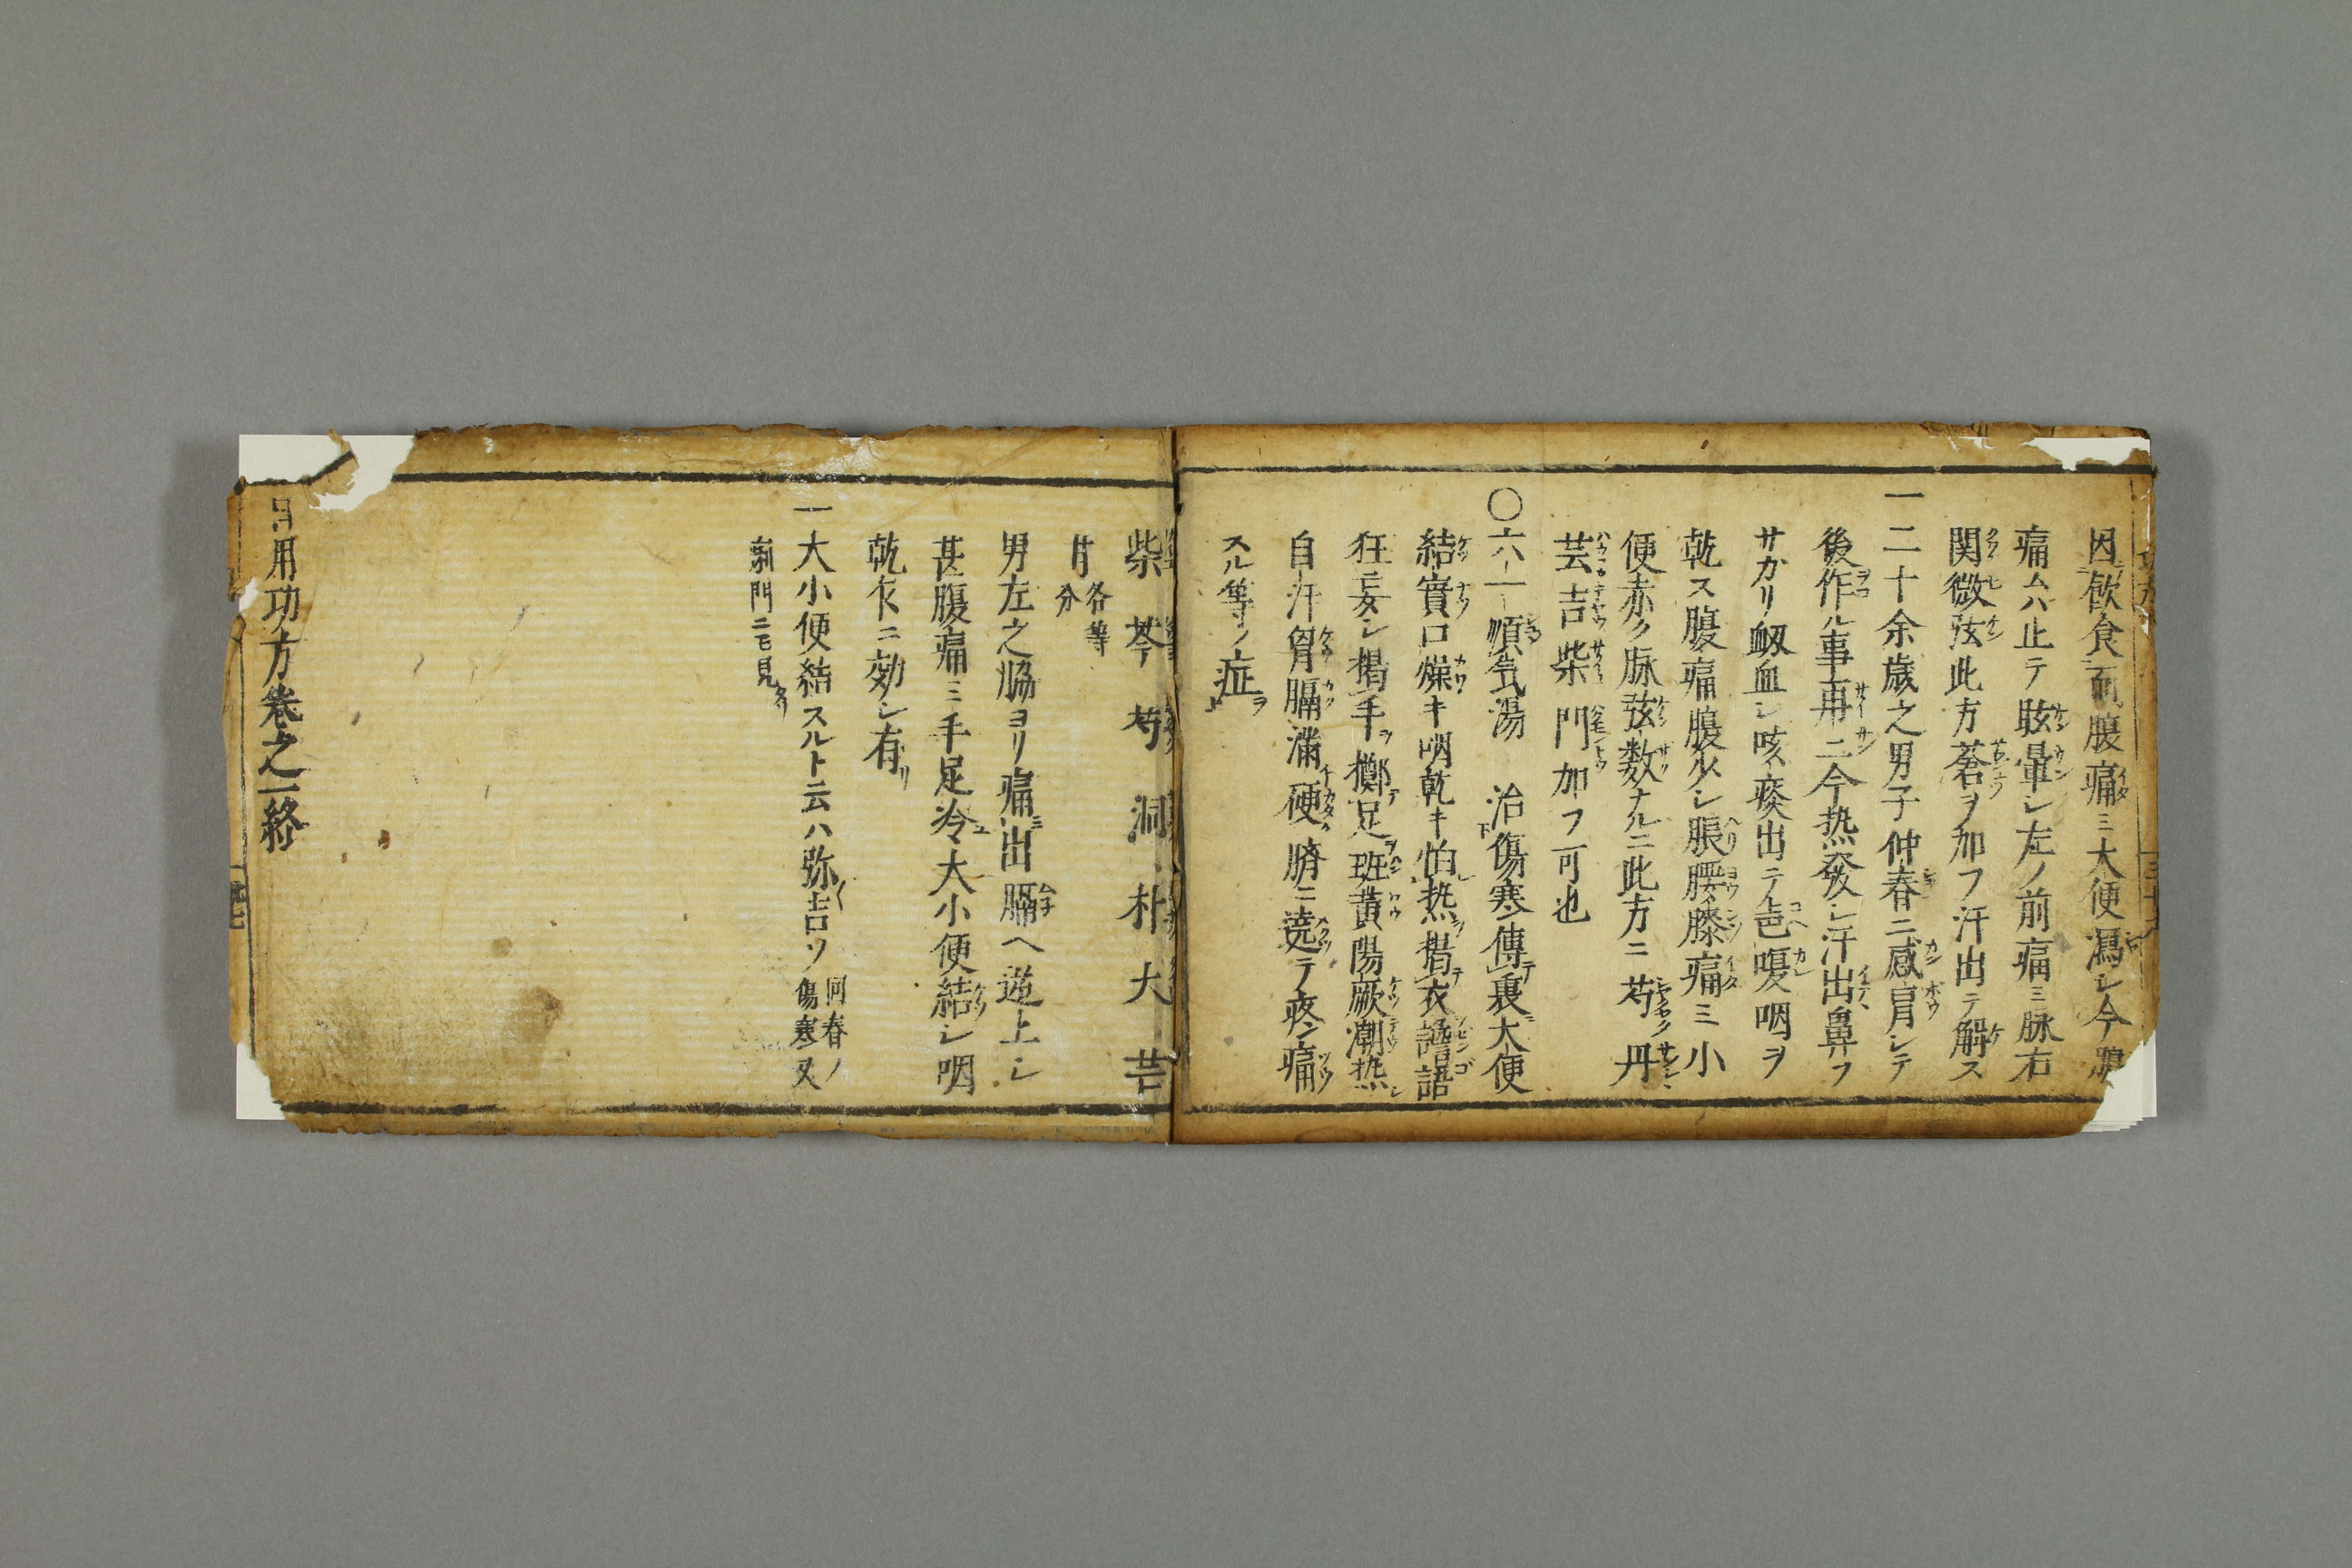 因飲食而腹痛ミ大便瀉シ今
痛ムハ止テ眩暈シ左ノ前痛ミ脉右
関微弦此方蒼ヲ加フ汗出テ解ス
一二十余歳之男子仲春ニ感冒シテ
後作ル事再二今热發シ汗出鼻フ
サカリ衂血シ咳痰出テ声嗄咽ヲ
乾ス腹痛腹少シ脹腰膝痛ミ小
便赤ク脉弦数ナルニ此方ニ芍丹
芸吉柴門加フ可也
〇六一順気湯 治傷寒傳裏大便
結實口燥キ咽乾キ怕热揭衣譫語
狂妄シ揚手ヲ擲足班黄陽厥潮热
自汗胷膈滿硬臍ニ遶テ疼ン痛
スル等ノ症ヲ
柴 芩 芍 洞 朴 大 芒
甘 各等分
男左之脇ヨリ痛出膈ヘ逆上シ
甚腹痛ミ手足冷大小便結シ咽
乾衣ニ効シ有リ
一大小便結スルト云ハ弥吉ソ 回春ノ傷寒又
新門ニモ見タリ
日用功方巻之一終